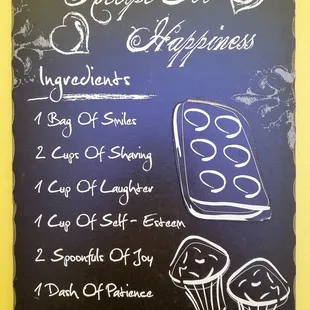 Recipe For
Happiness
Ingredients
1 Bag Of Smiles
2 Cups Of Sharing
1 Cup Of Laughter
1 Cup Of Self - Esteem
2 Spoonfuls Of Joy
1 Dash Of Patience